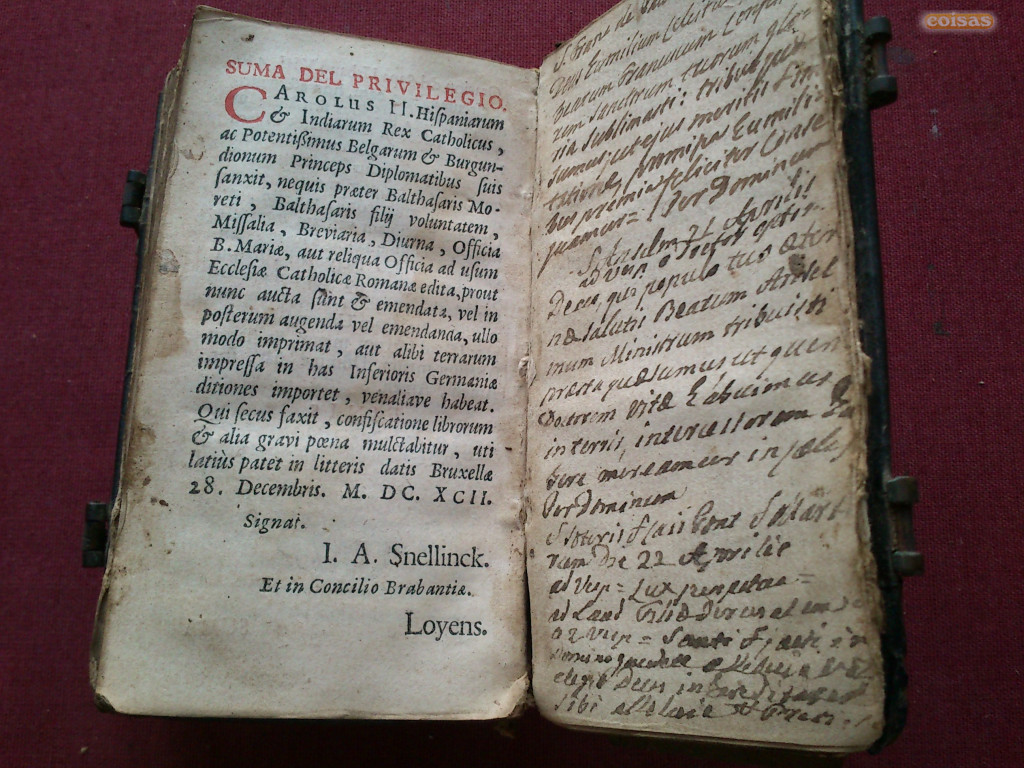 SUMA DEL PRIVILEGIO.
CAROLUS II. Hiſpaniarum
& Indiarum Rex Catholicus,
ac Potentiſſimus Belgarum & Burgun-
dionum Princeps Diplomatibus ſuis
ſanxit, nequis præter Balthaſaris Mo-
reti, Balthaſaris filij voluntatem,
Miſſalia, Breviaria, Diurna, Officia
B. Mariæ, aut reliqua Officia ad uſum
Eccleſiæ Catholicæ Romanæ edita, prout
nunc aucta ſunt & emendata, vel in
poſterum augenda vel emendanda, ullo
modo imprimat, aut alibi terrarum
impreſſa in has Inferioris Germaniæ
ditiones importet, venaliave habeat.
Qui ſecus faxit, confiſcatione librorum
& alia gravi pœna mulctabitur, uti
latiùs patet in litteris datis Bruxellæ
28. Decembris. M. DC. XCII.
Signat.
I. A. Snellinck.
Et in Concilio Brabantiæ.
Loyens.
coisas
S. Fran de
Deus
Beatum
Sanctorum tuorum
sublimasti: tribue
sumus, ut ejus meritis
Per Dominum
S. Anselm 21 Aprilis
Deus, qui populo tuo æter
næ salutis Beatum Ansel
mum Ministrum tribuisti
præsta quæsumus ut quem
Doctorem vitæ habuimus
in terris, intercessorem ha
bere mereamur in cælis
Per Dominum
Die 22 Aprilis
ad Vesp = Lux perpetua =
ad Laud Filiæ
2 Vesp = Sancti
Domino gaudete
elegit Deus in
sibi alleluia